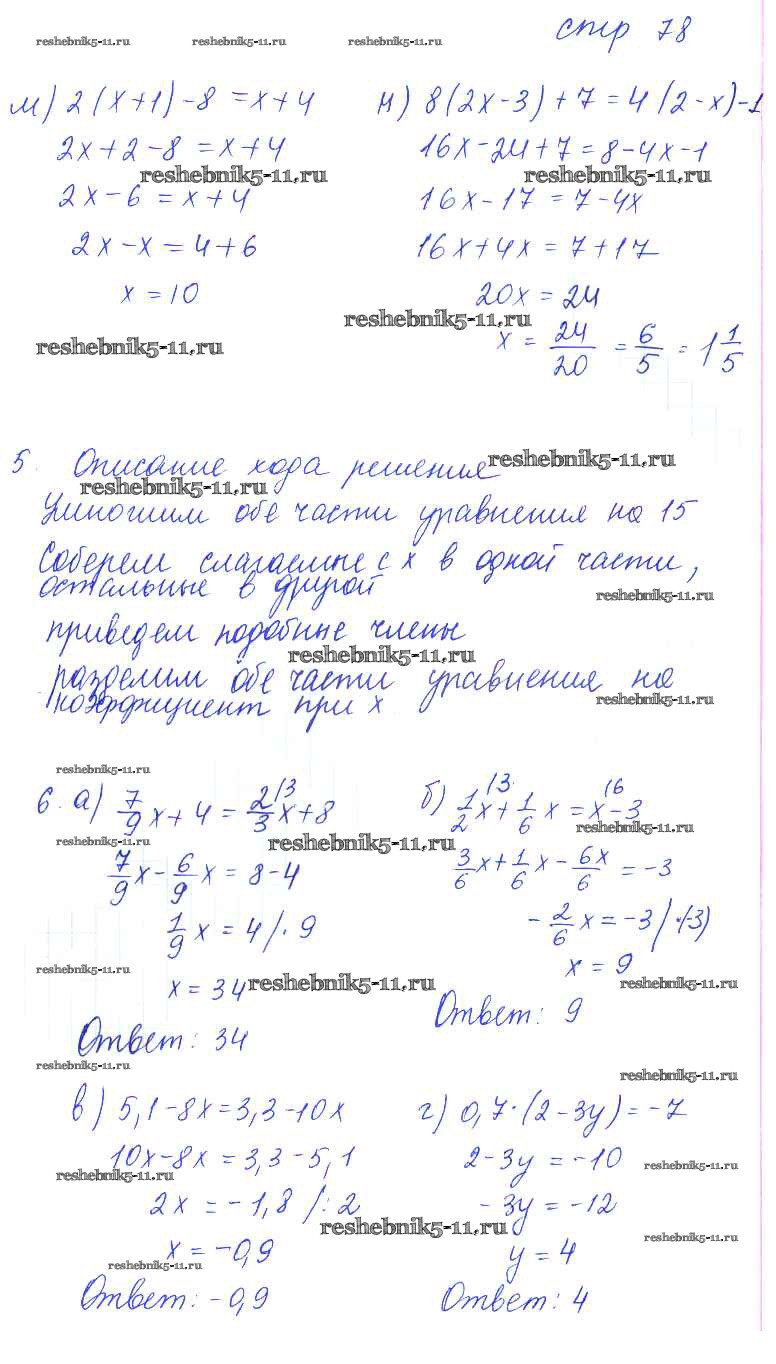 reshebnik5-11.ru reshebnik5-11.ru reshebnik5-11.ru стр 78
м) 2(x+1)-8=x+4
2x+2-8=x+4
reshebnik5-11.ru
2x-6=x+4
2x-x=4+6
x=10
reshebnik5-11.ru
н) 8(2x-3)+7=4(2-x)-1
16x-24+7=8-4x-1
reshebnik5-11.ru
16x-17=7-4x
16x+4x=7+17
20x=24
reshebnik5-11.ru
x=24/20=6/5=1 1/5
5. Описание хода решения
reshebnik5-11.ru
reshebnik5-11.ru
Умножим обе части уравнения на 15
Соберем слагаемые с x в одной части,
остальные в другой
reshebnik5-11.ru
приведем подобные члены
reshebnik5-11.ru
разделим обе части уравнения на
reshebnik5-11.ru
коэффициент при x
reshebnik5-11.ru
6. а) 7/9x+4=2/3\3x+8
reshebnik5-11.ru
reshebnik5-11.ru
7/9x-6/9x=8-4
1/9x=4/·9
reshebnik5-11.ru
x=34
reshebnik5-11.ru
Ответ: 34
reshebnik5-11.ru
б) 1/2\3x+1/6x=x\6-3
reshebnik5-11.ru
3/6x+1/6x-6x/6=-3
-2/6x=-3/·(-3)
x=9
reshebnik5-11.ru
Ответ: 9
reshebnik5-11.ru
в) 5,1-8x=3,3-10x
10x-8x=3,3-5,1
reshebnik5-11.ru
2x=-1,8/:2
reshebnik5-11.ru
x=-0,9
reshebnik5-11.ru
Ответ: -0,9
г) 0,7·(2-3y)=-7
2-3y=-10
reshebnik5-11.ru
-3y=-12
reshebnik5-11.ru
y=4
Ответ: 4